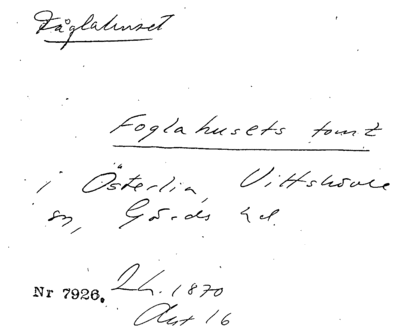 Fåglahuset
Foglahusets tomt
i Österlia, Vittskövle
sn, Gärds hd.
Nr 7926. Lh. 1870
Akt 16